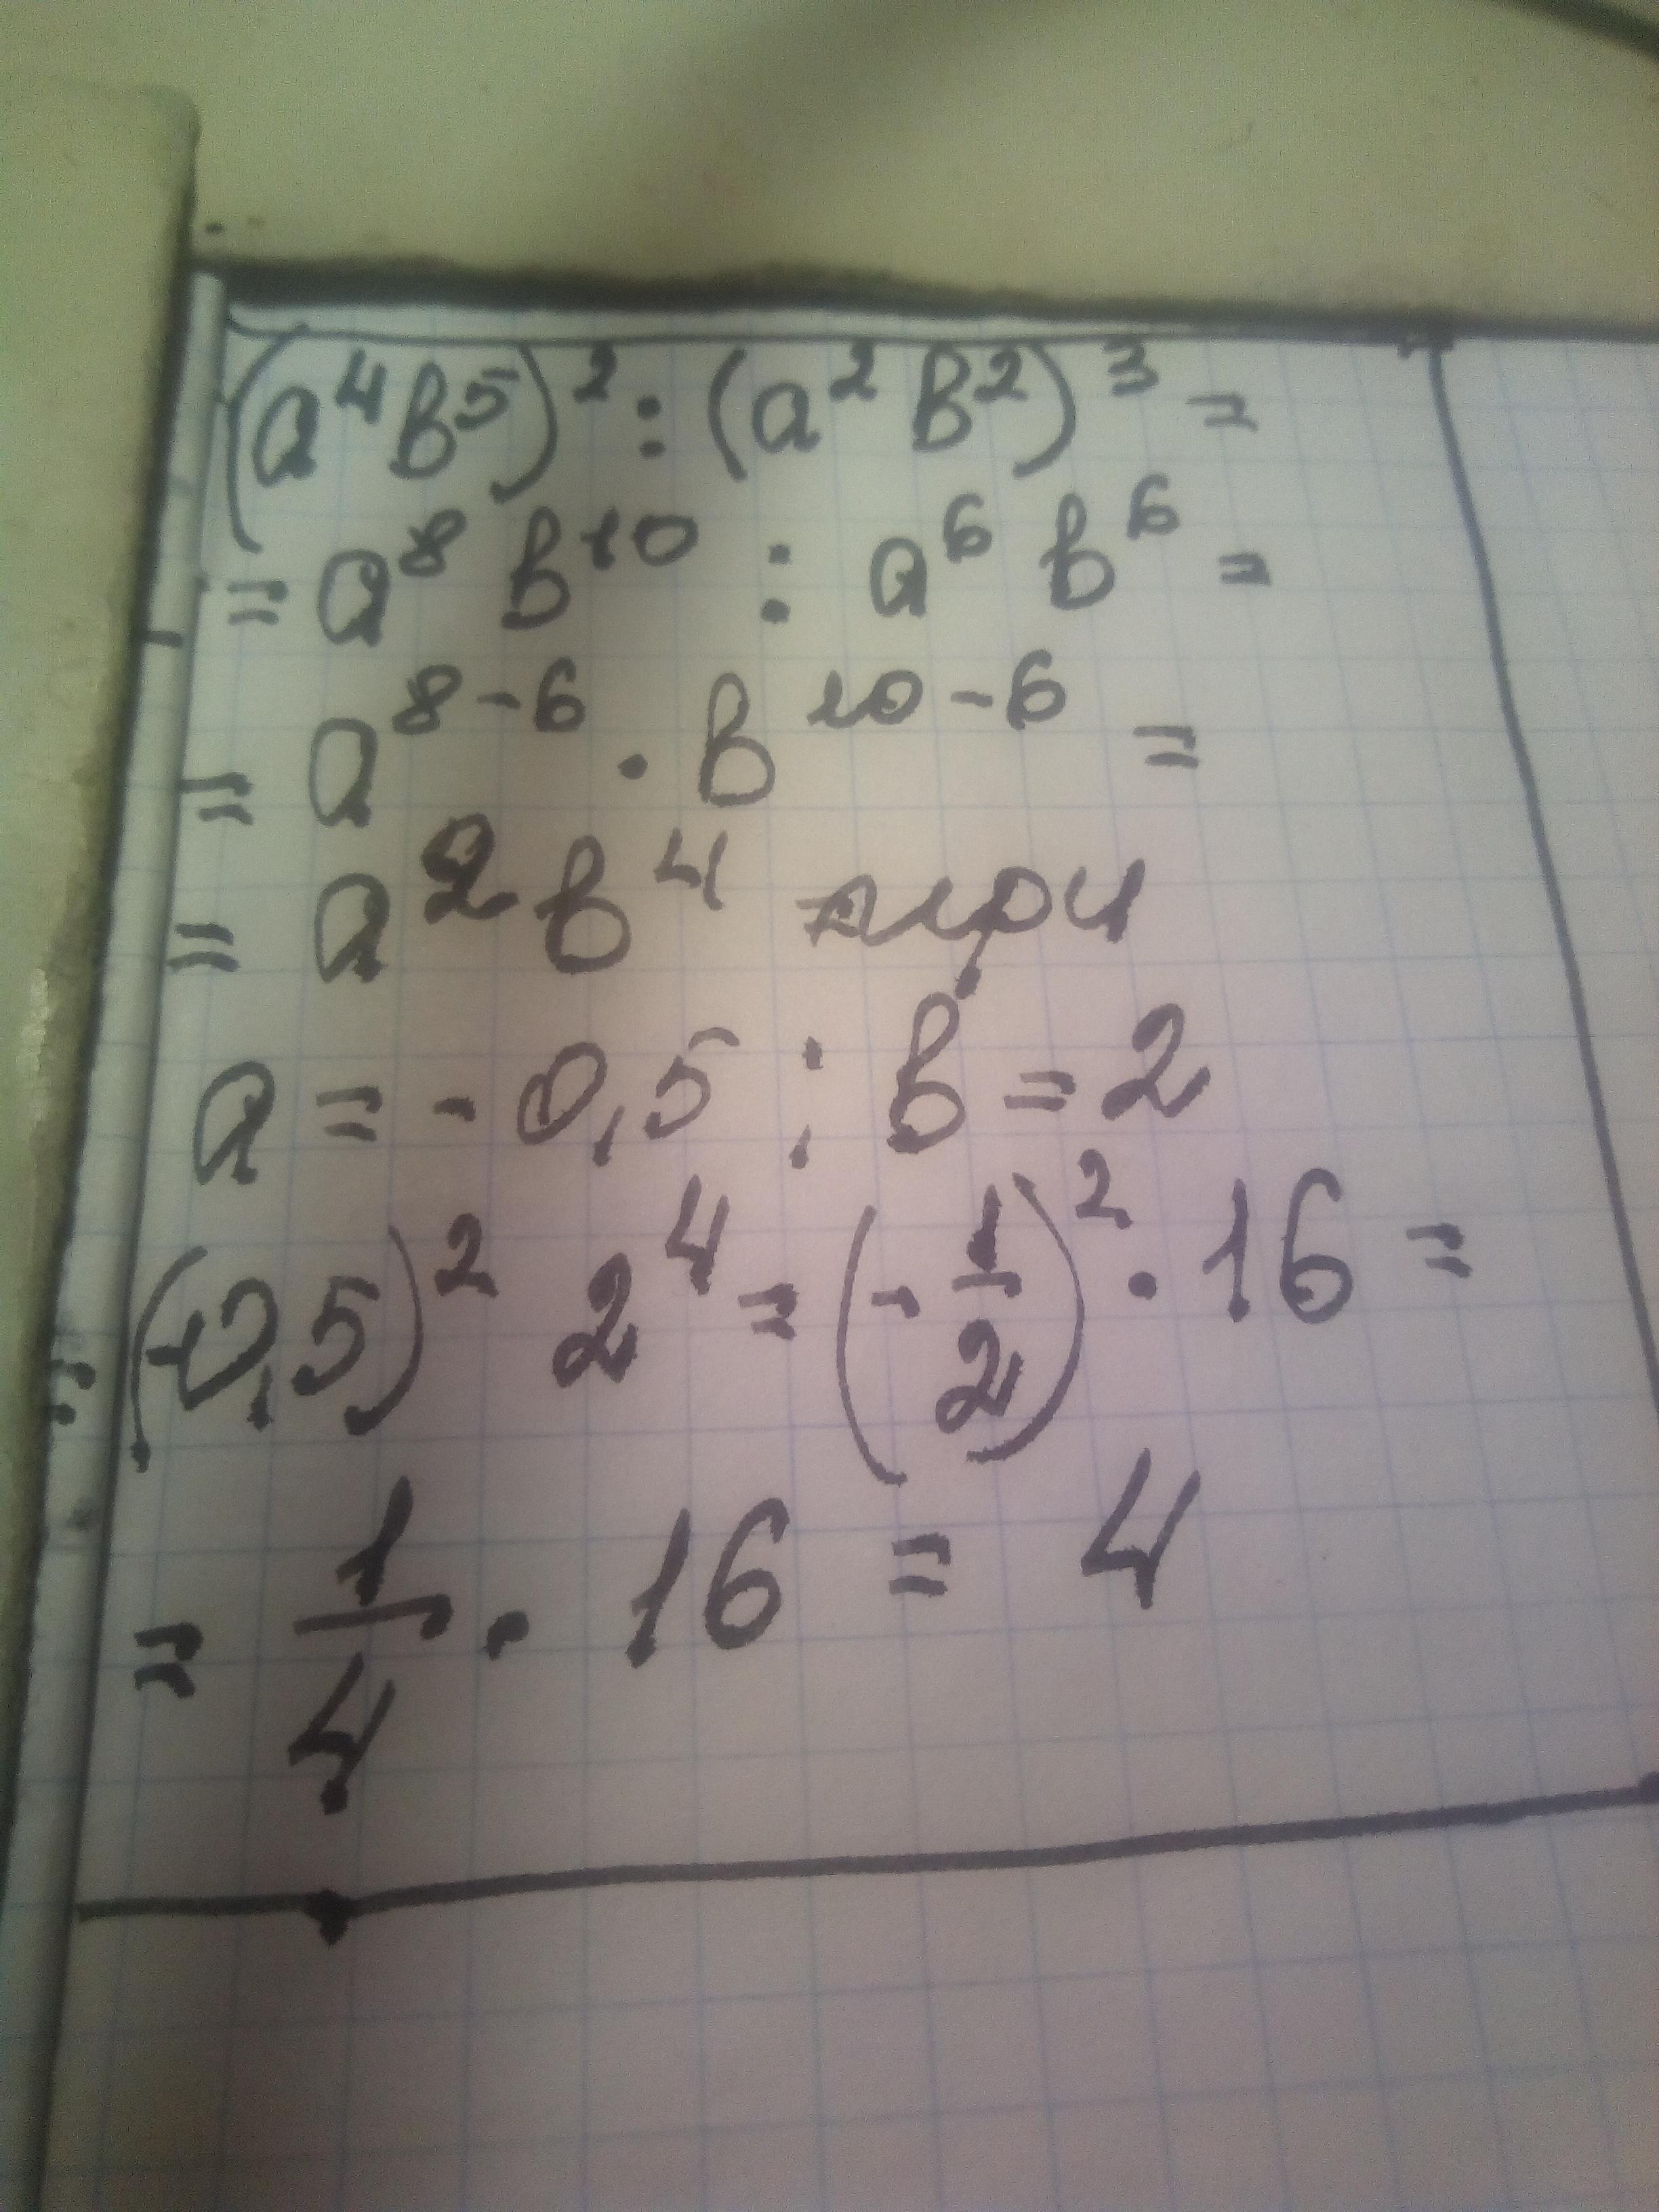 (a⁴b⁵)² : (a²b²)³ =
= a⁸ b¹⁰ : a⁶ b⁶ =
= a⁸⁻⁶ · b¹⁰⁻⁶ =
= a² b⁴ при
a = - 0,5 ; b = 2
= (-0,5)² 2⁴ = (- 1/2)² · 16 =
= 1/4 · 16 = 4